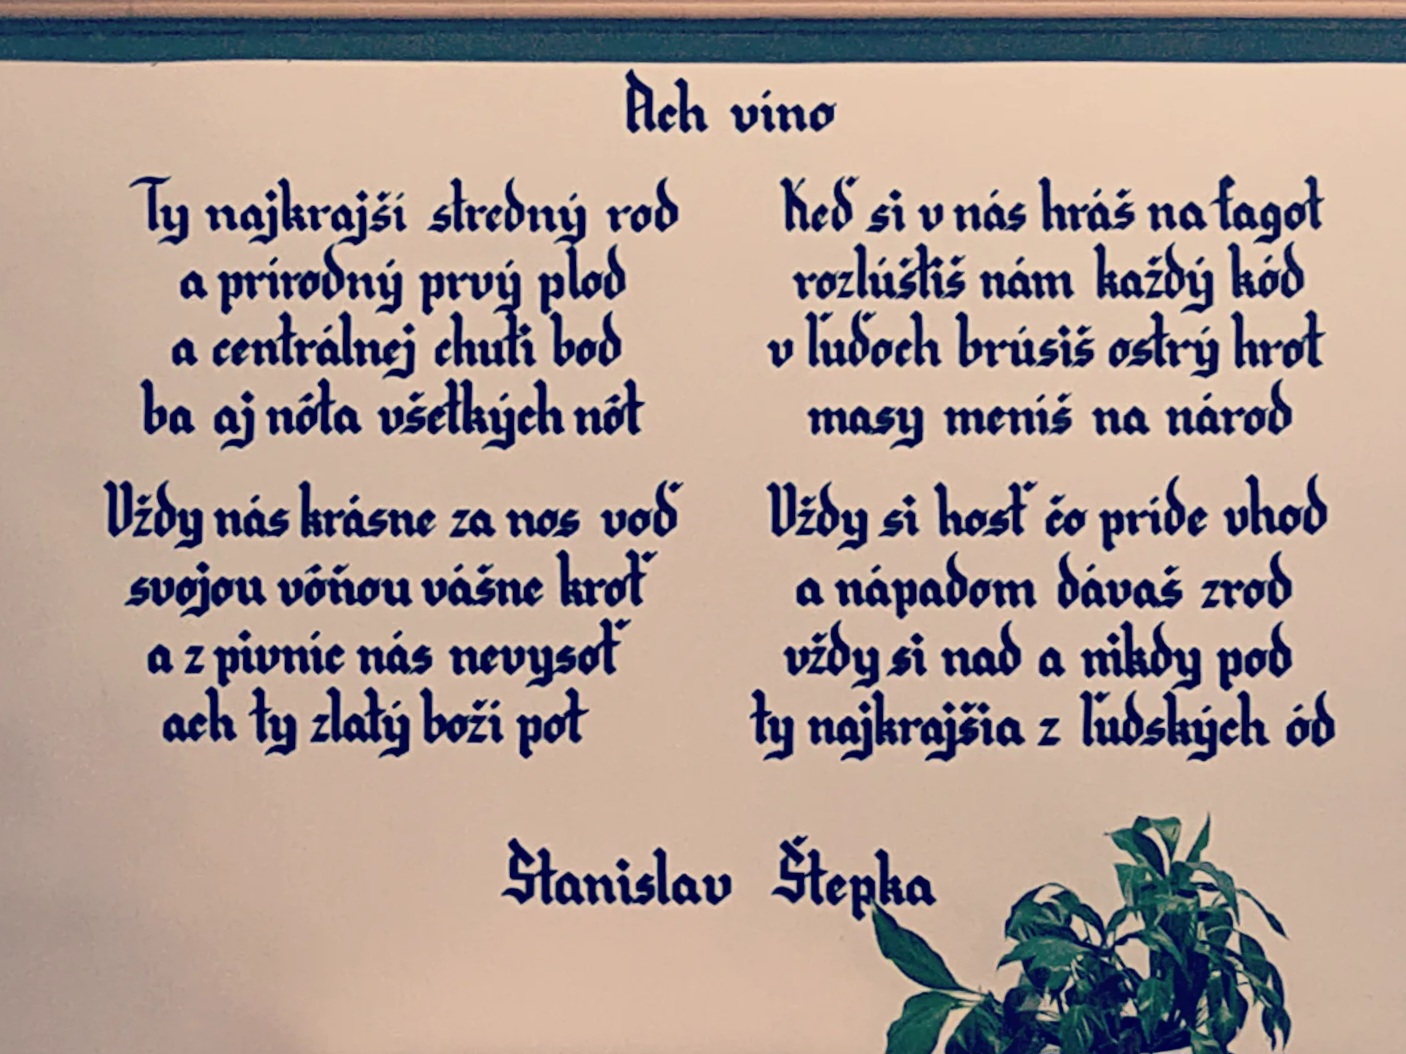 Ach víno
Ty najkrajší stredný rod
a prírodný prvý plod
a centrálnej chuti bod
ba aj nóta všetkých nót
Vždy nás krásne za nos voď
svojou vôňou vášne kroť
a z pivníc nás nevysoť
ach ty zlatý boží pot
Keď si v nás hráš na fagot
rozlúštiš nám každý kód
v ľuďoch brúsiš ostrý hrot
masy meníš na národ
Vždy si hosť čo príde vhod
a nápadom dávaš zrod
vždy si nad a nikdy pod
ty najkrajšia z ľudských ód
Stanislav Štepka